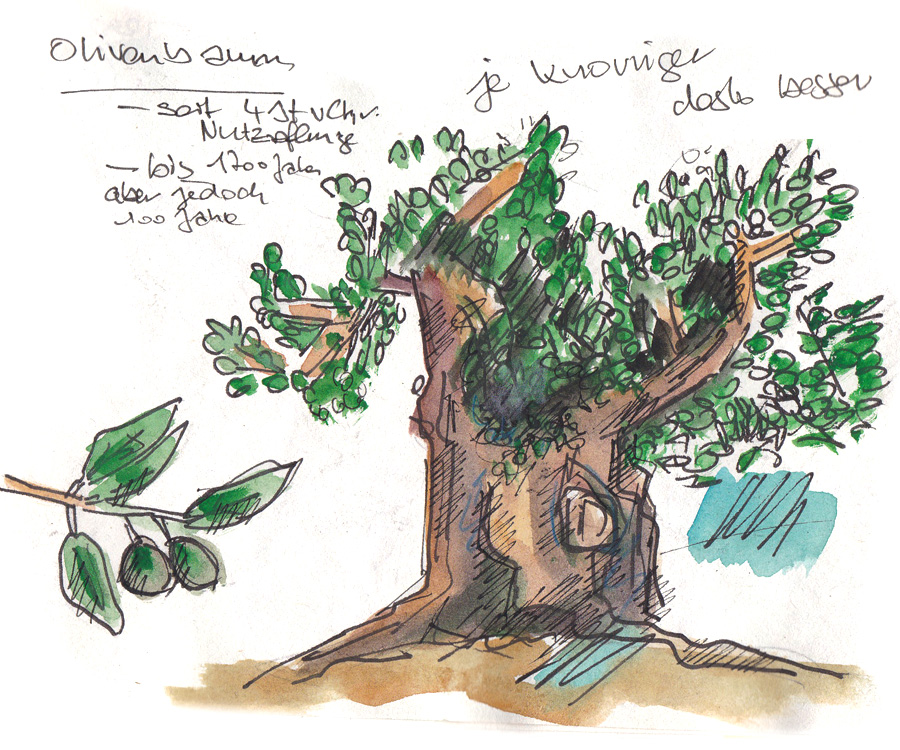 Olivenbaum
– seit 4 Jt v Chr.
Nutzpflanze
– bis 1700 Jahre
aber jedoch
100 Jahre
je knorriger
desto besser